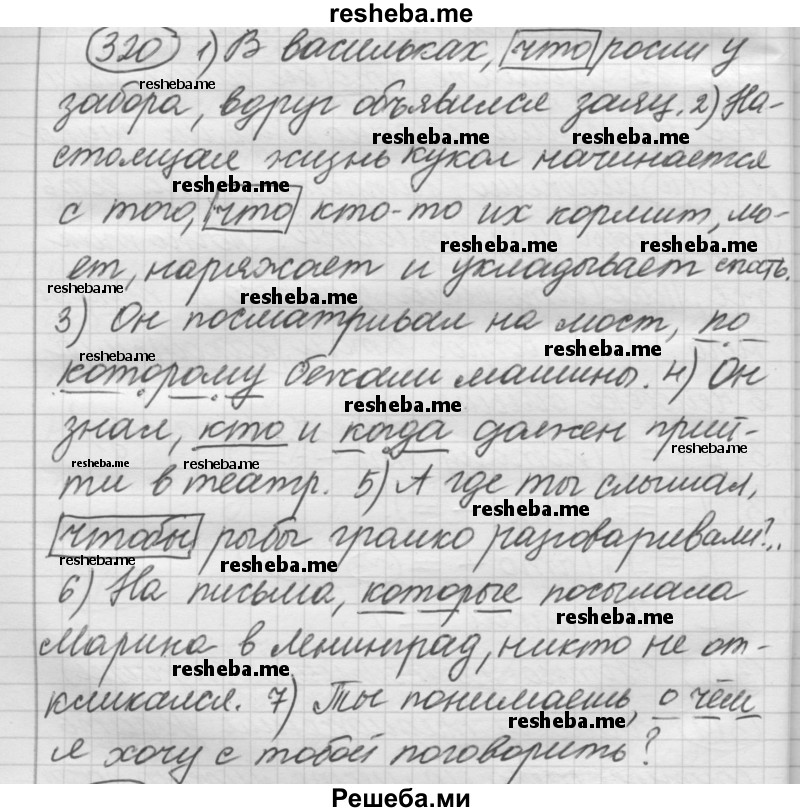 resheba.me
320 1) В васильках, что росли у
resheba.me
забора, вдруг объявился заяц. 2) На-
resheba.me resheba.me
стоящая жизнь кукол начинается
resheba.me
с того, что кто-то их кормит, мо-
resheba.me resheba.me
ет, наряжает и укладывает спать.
resheba.me resheba.me
3) Он посматривал на мост, по
resheba.me resheba.me
которому бежали машины. 4) Он
resheba.me
знал, кто и когда должен прий-
resheba.me resheba.me
ти в театр. 5) А где ты слышал,
resheba.me
чтобы рыбы громко разговаривали?..
resheba.me resheba.me
6) На письма, которые посылала
resheba.me
Марина в Ленинград, никто не от-
resheba.me
кликался. 7) Ты понимаешь, о чём
resheba.me
я хочу с тобой поговорить?
Решеба.ми